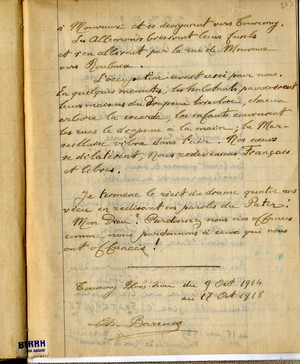 à Mouvaux et se dirigeant vers Tourcoing.
Les Allemands brisèrent leurs fusils
et s'en allèrent par la rue de Mouvaux
vers Roubaix.
L'occupation avait cessé pour nous.
En quelques minutes, les habitants pavoisèrent
leurs maisons du drapeau tricolore, chacun
arbora la cocarde, les enfants couraient
les rues le drapeau à la main ; la Mar-
seillaise vibra dans l'air. Nos cœurs
se dilatèrent. Nous redevenions Français
et libres.
Je termine le récit du drame quatre ans
vécu en redisant ces paroles du Pater :
Mon Dieu ! Pardonnez nous nos offenses
comme nous pardonnons à ceux qui nous
ont offensés !
Tourcoing du 9 Oct 1914
au 17 Oct 1918